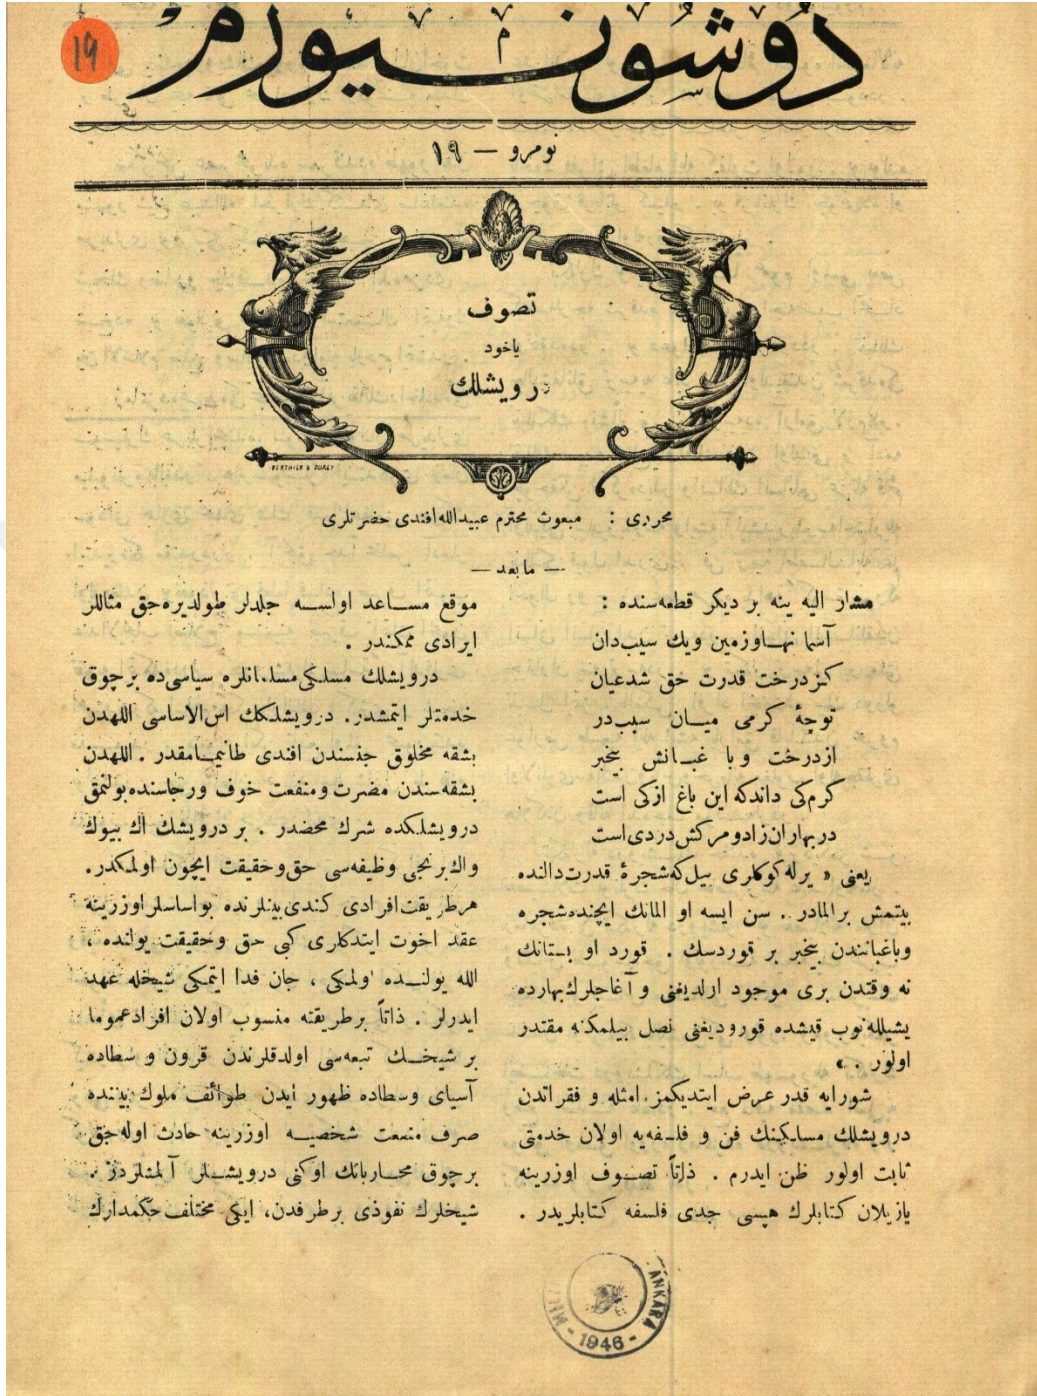 دوشونیورم
۱۹
نومرو — ۱۹
تصوف
یاخود
درویشلك
BERTHIER & DUREY
محرری : مبعوث محترم عبیدالله افندی حضرتلری
— مابعد —
مشار الیه ینه بر دیکر قطعه‌سنده :
آسما نهـاوزمین ویك سیب‌دان
کز درخت قدرت حق شدعیان
توچهٔ کرمی میـان سیب‌در
از درخت و با غبـانش بیخبر
کرم کی داندکه این باغ ازکی است
در بهاران‌زاد و مرکش‌دردی‌است
یعنی « یرله کوکلری بیل که شجرهٔ قدرت دالنده
بیتمش برالمادر . سن ایسه او المانك ایچنده شجره
وباغبانندن بیخبر بر قوردسك . قورد او بستانك
نه وقتدن بری موجود اولدیغنی و آغاجلرك بهارده
یشیللەنوب قیشده قورودیغنی نصل بیلمکه مقتدر
اولور . »
شورایه قدر عرض ایتدیکمز امثله و فقراتدن
درویشلك مسلکینك فن و فلسفه‌یه اولان خدمتی
ثابت اولور ظن ایدرم . ذاتاً تصـوف اوزرینه
یازیلان کتابلرك هپسی جدی فلسفه کتابلریدر .
موقع مسـاعد اولسـه جلدلر طولدیره‌جق مثاللر
ایرادی ممکندر .
درویشلك مسلکی مسلمانلره سیاسی‌ده بر چوق
خدمتلر ایتمشدر. درویشلکك اس‌الاساسی اللهدن
بشقه مخلوق جنسندن افندی طانیمـامقدر . اللهدن
بشقه‌سندن مضرت ومنفعت خوف ورجاسنده بولنمق
درویشلکده شرك محضدر . بر درویشك اك بیوك
واك برنجی وظیفه‌سی حق‌وحقیقت ایچون اولمکدر.
هرطریقت افرادی کندی بینلرنده بواساسلر اوزرینه
عقد اخوت ایتدکلری کبی حق وحقیقت یولنده ،
الله یولنـده اولمکی ، جان فدا ایتمکی شیخله عهد
ایدرلر . ذاتاً برطریقته منسوب اولان افراد عموما
بر شیخـك تبعه‌سی اولدقلرندن قرون و سطاده
آسیای وسطاده ظهور ایدن طوائف ملوك بیننده
صرف منفعت شخصیـه اوزرینه حادث اوله‌جق
بر چوق محـاربانك اوکنی درویشـلر آلمشلردر .
شیخلرك نفوذی برطرفدن، ایکی مختلف حکمدارك
ANKARA
- 1946 -